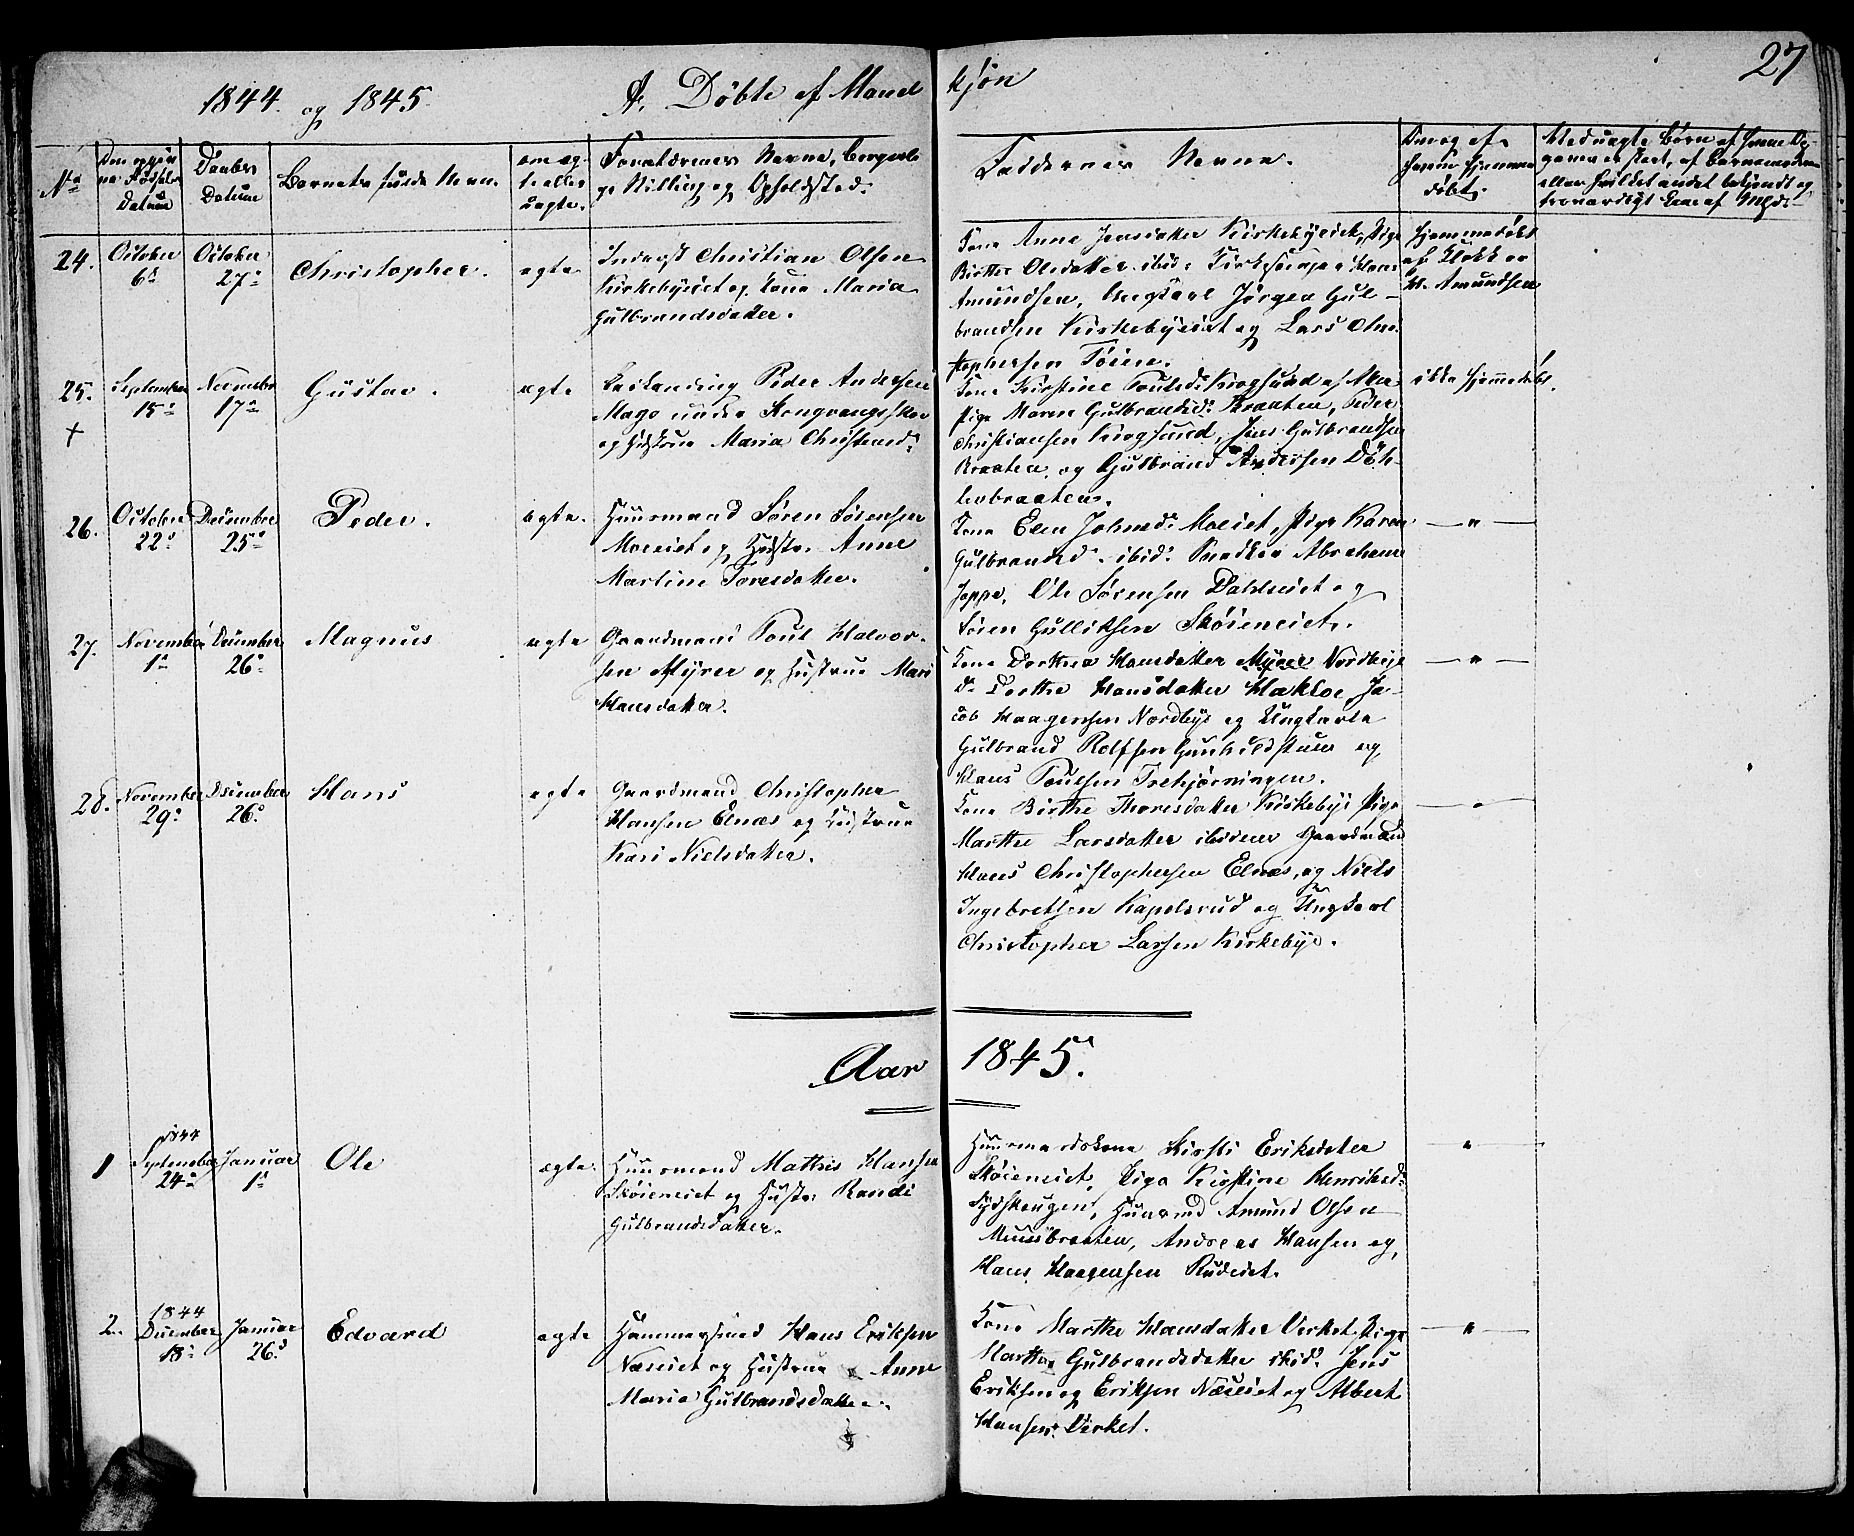 27
1844 og 1845 A. Døbte af Mand kjøn
No Datum Daabs Datum Barnets fulde Navn. ægte eller uægte. Forældrenes Navne, Borgerli- ge Stilling og Opholdsted.
Faddernes Navne.
døbt.
24. October 6. October 27. Christopher. ægte
Inderst Christian Olsen
Kirkebyeiet og Kone Maria
Gulbrandsdatter.
Kone Anne Jensdatter Kirkebyeiet, Pige
Birthe Olsdatter ibid: Kirkesanger Hans
Amundsen, Ungkarl Jørgen Gul-
brandsen Kirkebyeiet og Lars Chri
stophersen Tøien.
Hjemmedøbt
af Klokker
H. Amundsen
25. September 15. November 17. Gustav. ægte
Peder Andersen
Mago under Kongvangs
og Hustrue Maria Christensd:
Kone Kirstine Poulsd: Krogsund af
Pige Maren Gulbrandsd: Braaten, Peder
Christiansen Krogsund, Jens Gulbrandsen
Braaten og Gulbrand Andersen Døh-
lebraaten.
ikke hjemmedøbt.
26. October 22. December 25. Peder. ægte.
Huusmand Søren Sørensen
Moeiet og Hustr. Anne
Martine Toresdatter.
Kone Elen Johnsd: Moeiet, Pige Karen
Gulbrandsd. ibid: Snedker Abraham
Joppe, Ole Sørensen Dahleiet og
Søren Gulliksen Skøieneiet.
— " —
27. November 1. December 26. Magnus ægte
Gaardmand Poul Halvor-
sen Myrer og Hustrue Mari
Hansdatter.
Kone Dorthea Hansdatter Myrer Nordbye
D. Dorthe Hansdatter Hakloe, Ja-
cob Haagensen Nordbye og Ungkarle
Gulbrand Rolfsen Gunhildstuen og
Hans Poulsen Trehjørningen.
— " —
28. November 29. December 26. Hans ægte
Gaardmand Christopher
Hansen Elnæs og Hustrue
Kari Nielsdatter.
Kone Birthe Thoresdatter Kirkebye Pige
Marthe Larsdatter ibidem Gaardmand
Hans Christophersen Elnæs, og Niels
Ingebretsen Kapelsrud og Ungkarl
Christopher Larsen Kirkebye.
Aar 1845.
1 1844 September 24. Januar 1. Ole ægte.
Huusmand Mathis Hansen
Skøieneiet og Hustr. Randi
Gulbrandsdatter.
Huusmandskone Kirsti Eriksdatter
Skøieneiet, Pige Kirstine Henriksd:
Sydskougen, Huusmd Amund Olsen
Andreas Hansen og
Hans Haagensen Rudeiet.
"
2. 1844 December 18. Januar 26. Edvard ægte
Hammersmed Hans Eriksen
Næseiet og Hustrue Anne
Maria Gulbrandsdatter.
Kone Marthe Hansdatter Verket, Pige
Marthe Gulbrandsdatter ibid: Jens
Eriksen og Eriksen Næseiet og Albert
Hansen Verket.
— " —